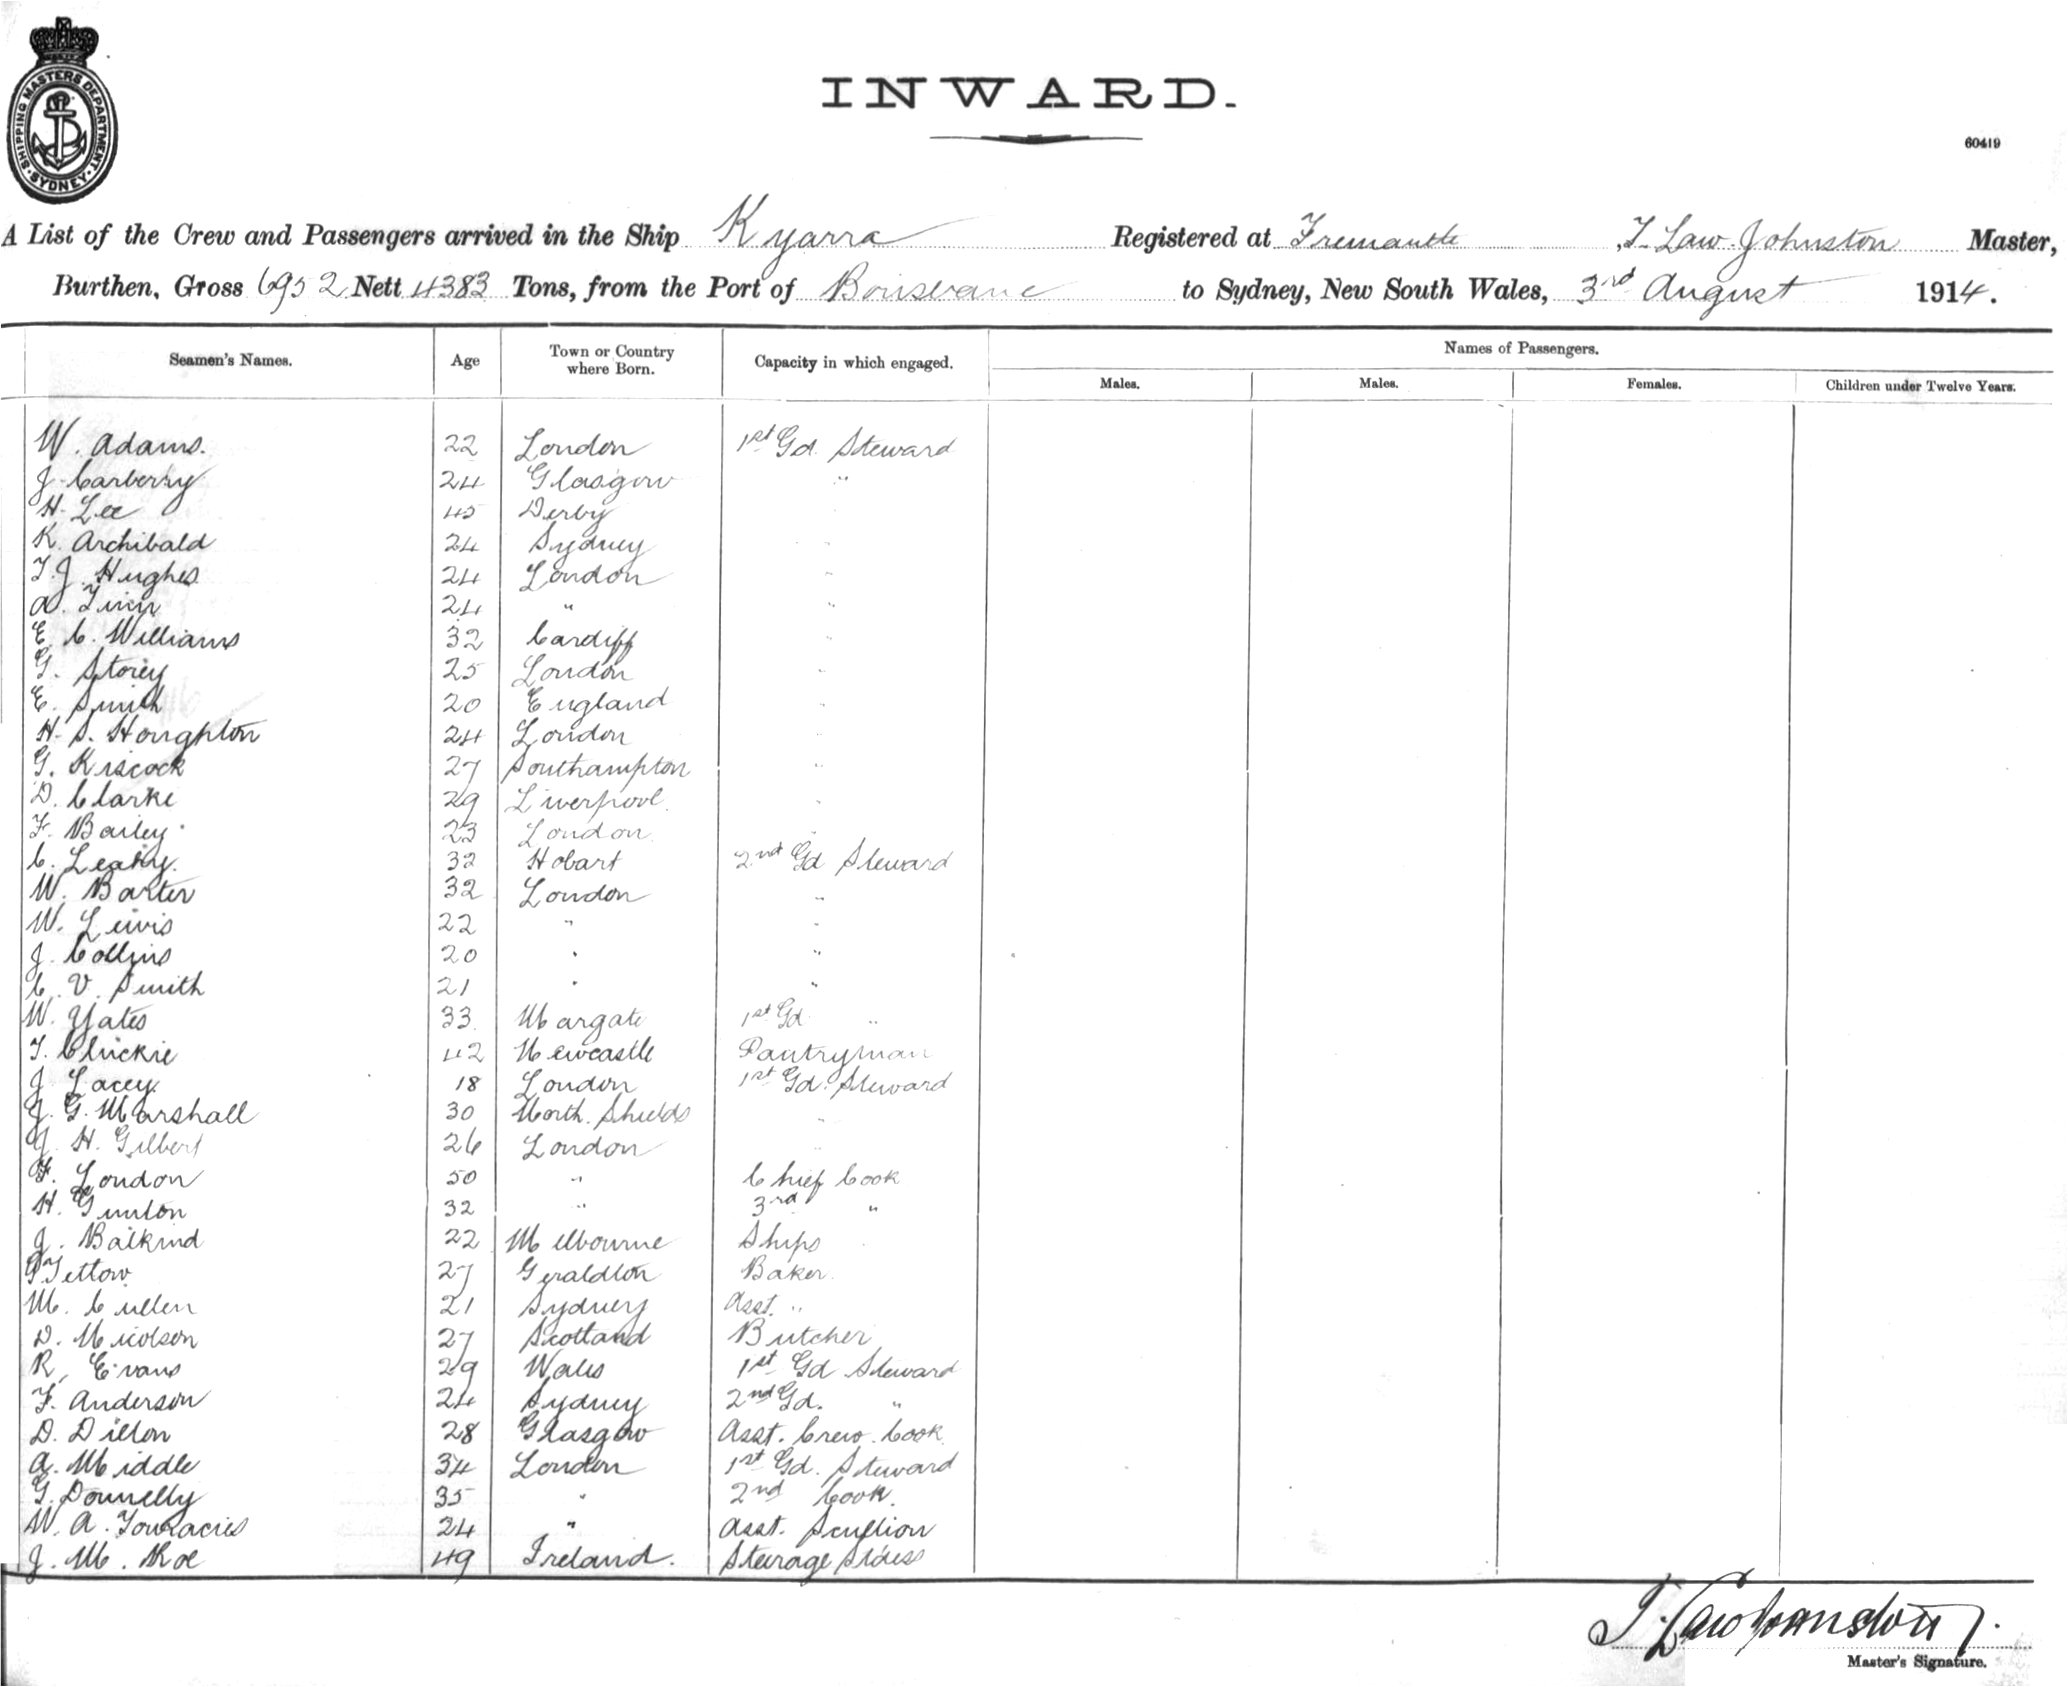 SHIPPING MASTERS DEPARTMENT
SYDNEY
INWARD.
60419
A List of the Crew and Passengers arrived in the Ship Kyarra Registered at Fremantle, T. Law. Johnston Master,
Burthen, Gross 6952 Nett 4383 Tons, from the Port of Brisbane to Sydney, New South Wales, 3rd August 1914.
Seamen's Names. Age Town or Country where Born. Capacity in which engaged. Names of Passengers.
Males. Males. Females. Children under Twelve Years.
W. Adams. 22 London 1st Gd. Steward
J. Carberry 24 Glasgow "
H. Lee 45 Derby "
K. Archibald 24 Sydney "
T. J. Hughes 24 London "
A. Finn 24 " "
E. C. Williams 32 Cardiff "
G. Storey 25 London "
E. Smith 20 England "
H. S. Houghton 24 London "
G. Kiscock 27 Southampton "
D. Clarke 29 Liverpool. "
F. Bailey 23 London. "
C. Leahy. 32 Hobart 2nd Gd Steward
W. Baxter 32 London "
W. Lewis 22 " "
J. Collins 20 " "
C. V. Smith 21 " "
W. Yates 33 Margate 1st Gd "
T. 42 Newcastle Pantryman
J. Lacey. 18 London 1st Gd. Steward
J. G. Marshall 30 North. Shields "
J. H. Gilbert 26 London "
F. London 50 " Chief Cook
H. Gunton 32 " 3rd "
J. Balkind 22 Melbourne Ships "
Tetlow. 27 Geraldton Baker.
M. Cullen 21 Sydney Asst. "
D. Nicolson 27 Scotland Butcher
R. Evans 29 Wales 1st Gd Steward
F. Anderson 24 Sydney 2nd Gd. "
D. Dillon 28 Glasgow Asst. Crew. Cook
A. Middle 34 London 1st Gd. Steward
G. Donnelly 35 " 2nd Cook.
W. A. 24 " Asst. Scullion
J. M. Roe 49 Ireland. Steerage Stdess
T. Law Johnston.
Master's Signature.